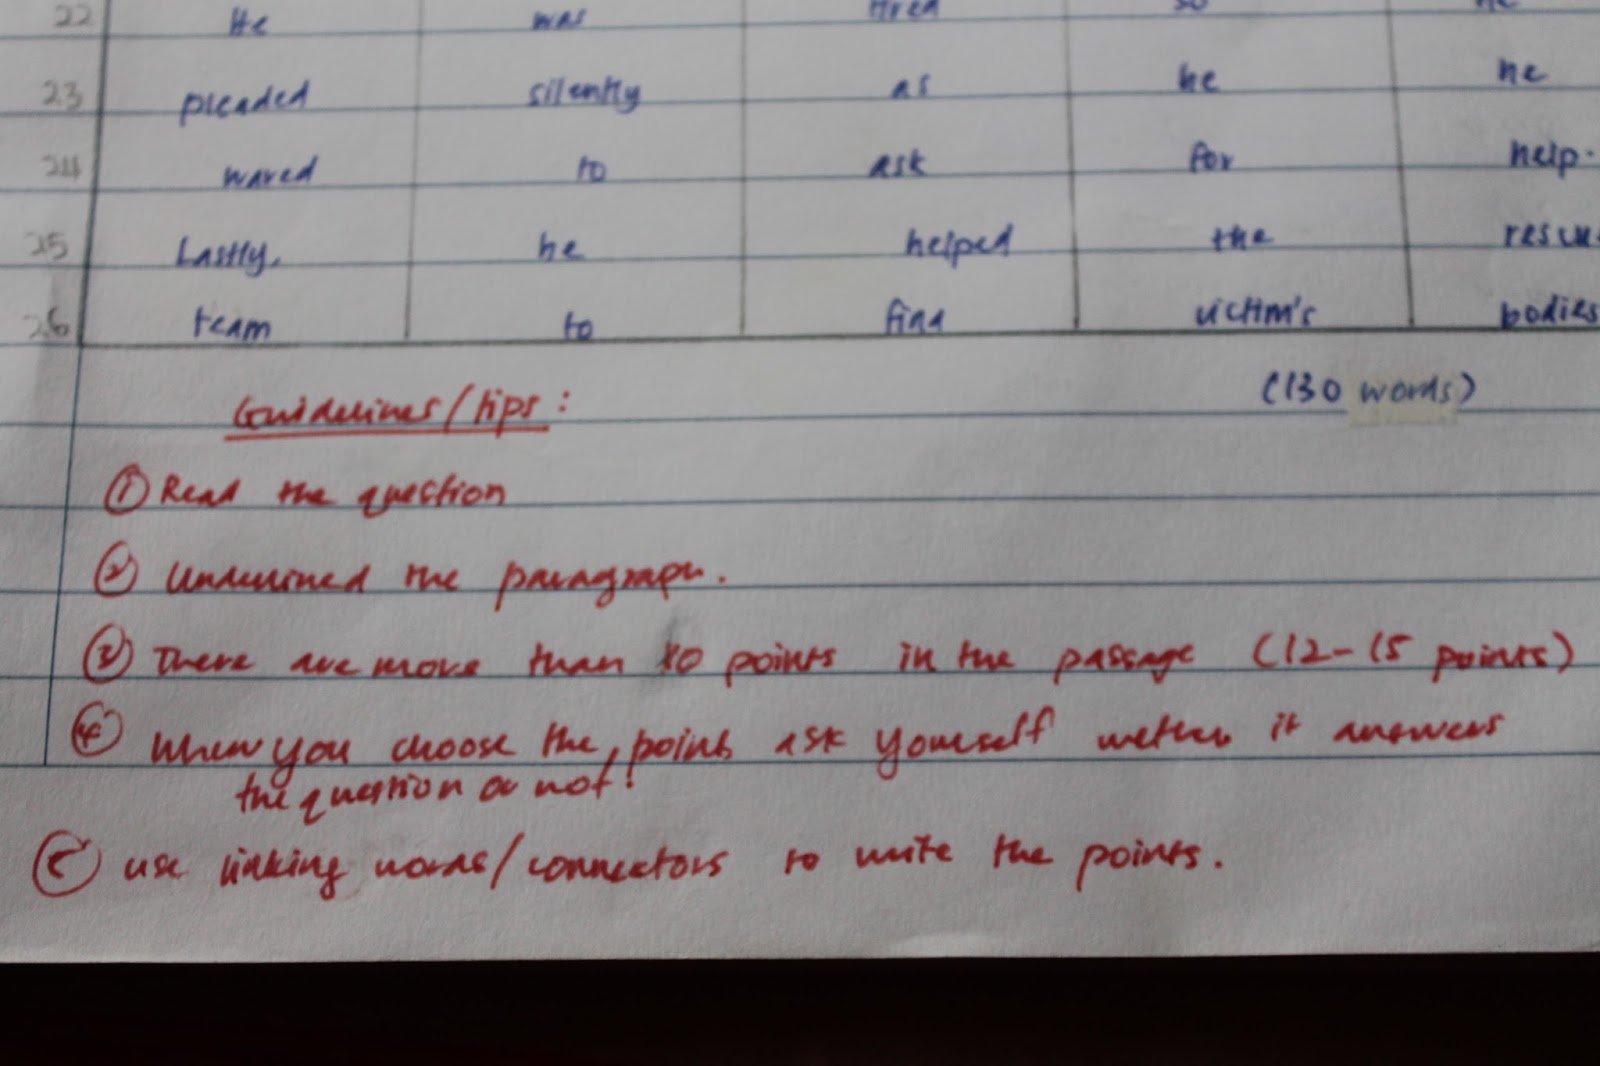 22 He was tired so he
23 pleaded silently as he he
24 waved to ask for help.
25 Lastly, he helped the rescu
26 team to find victim's bodies
(130 words)
Guidelines/tips:
① Read the question
② Underlined the paragraph.
③ There are more than 10 points in the passage (12-15 points)
④ When you choose the point, ask yourself wether it answers
the question or not!
⑤ use linking words/connectors to write the points.